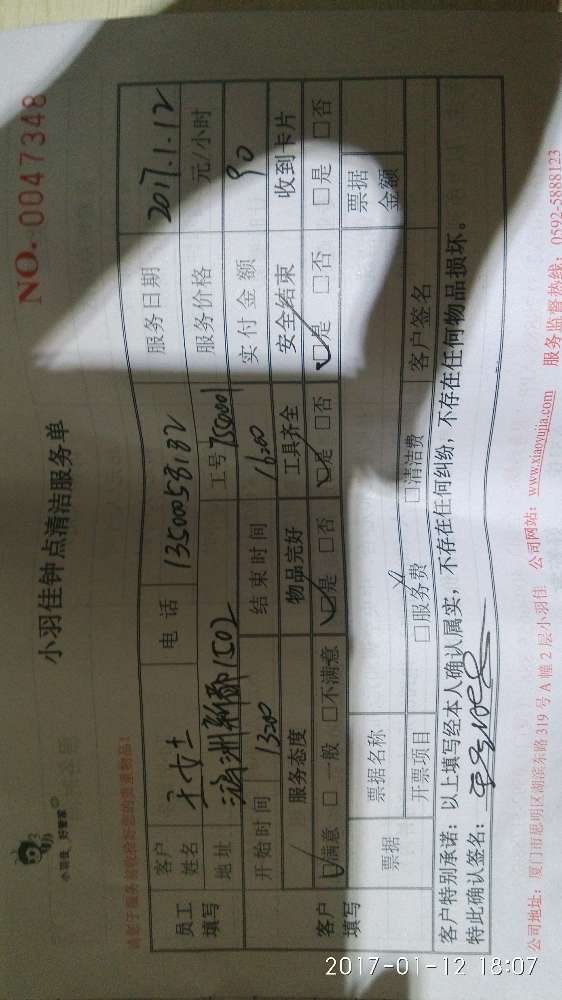 小羽佳 好管家
小羽佳钟点清洁服务单
NO. 0047348
请您于服务前收拾好您的贵重物品!
员工填写 客户姓名 王女士 电话 13500058132 服务日期 2017.1.12
地址 1502 工号 服务价格 元/小时
开始时间 13:00 结束时间 16:00 实付金额 90
客户填写 服务态度 物品完好 工具齐全 安全结束 收到卡片
满意 □ 一般 □不满意 是 □否 是 □否 是 □否 □是 □否
票据 票据名称 票据金额
开票项目 □服务费 □清洁费 客户签名
客户特别承诺:以上填写经本人确认属实,不存在任何纠纷,不存在任何物品损坏。
特此确认签名:
公司地址:厦门市思明区湖滨东路 319 号 A 幢 2 层小羽佳 公司网站:www.xiaoyujia.com 服务监督热线:0592-5888123
2017-01-12 18:07